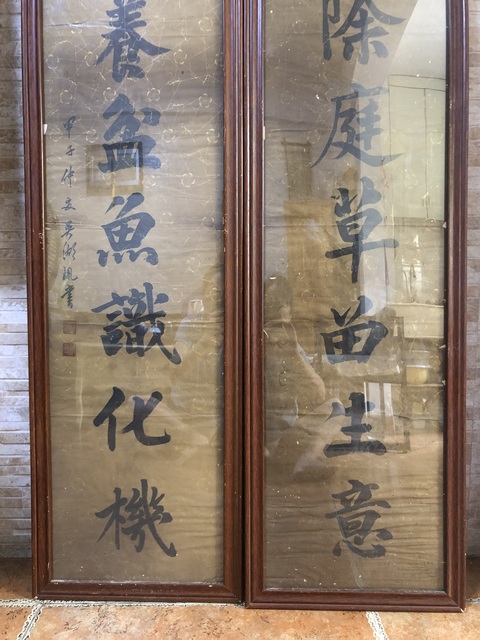 除庭草留生意
養盆魚識化機
甲子仲夏吳湖帆書